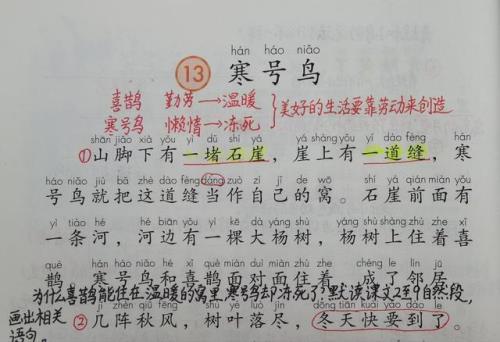 hán háo niǎo
13 寒号鸟
喜鹊 勤劳→温暖
寒号鸟 懒惰→冻死
美好的生活要靠劳动来创造
shān jiǎo xià yǒu yì dǔ shí yá yá shàng yǒu yí dào fèng hán
①山脚下有一堵石崖，崖上有一道缝，寒
háo niǎo jiù bǎ zhè dào fèng dàng zuò zì jǐ de wō shí yá qián miàn yǒu
号鸟就把这道缝当作自己的窝。石崖前面有
yì tiáo hé hé biān yǒu yì kē dà yáng shù yáng shù shàng zhù zhe xǐ
一条河，河边有一棵大杨树，杨树上住着喜
què hán háo niǎo hé xǐ què miàn duì miàn zhù zhe chéng le lín jū
鹊。寒号鸟和喜鹊面对面住着，成了邻居。
为什么喜鹊能住在温暖的窝里,寒号鸟却冻死了?默读课文2至9自然段,
画出相关
语句。
jǐ zhèn qiū fēng shù yè luò jìn dōng tiān kuài yào dào le
②几阵秋风，树叶落尽，冬天快要到了。